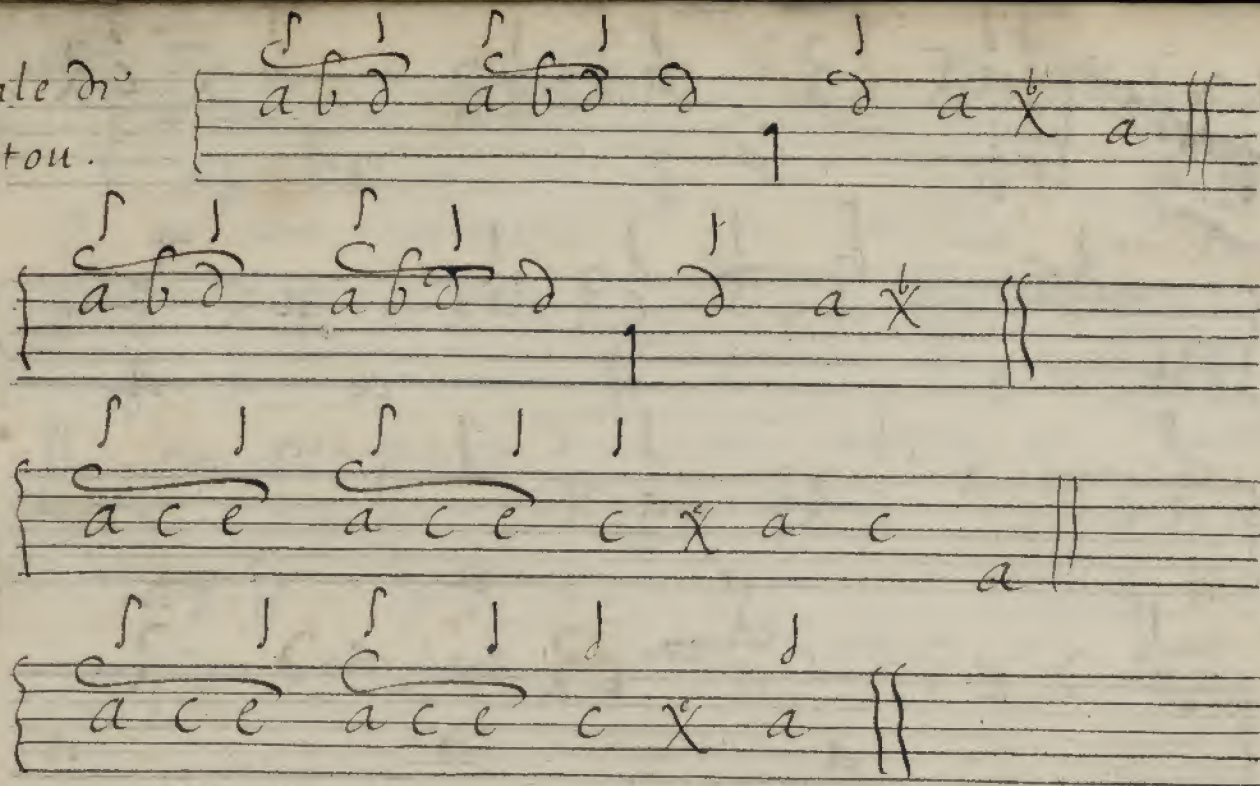 tou.
a b d a b d d d a x a
a b d a b d d d a x
a c e a c e c x a c a
a c e a c e c x a